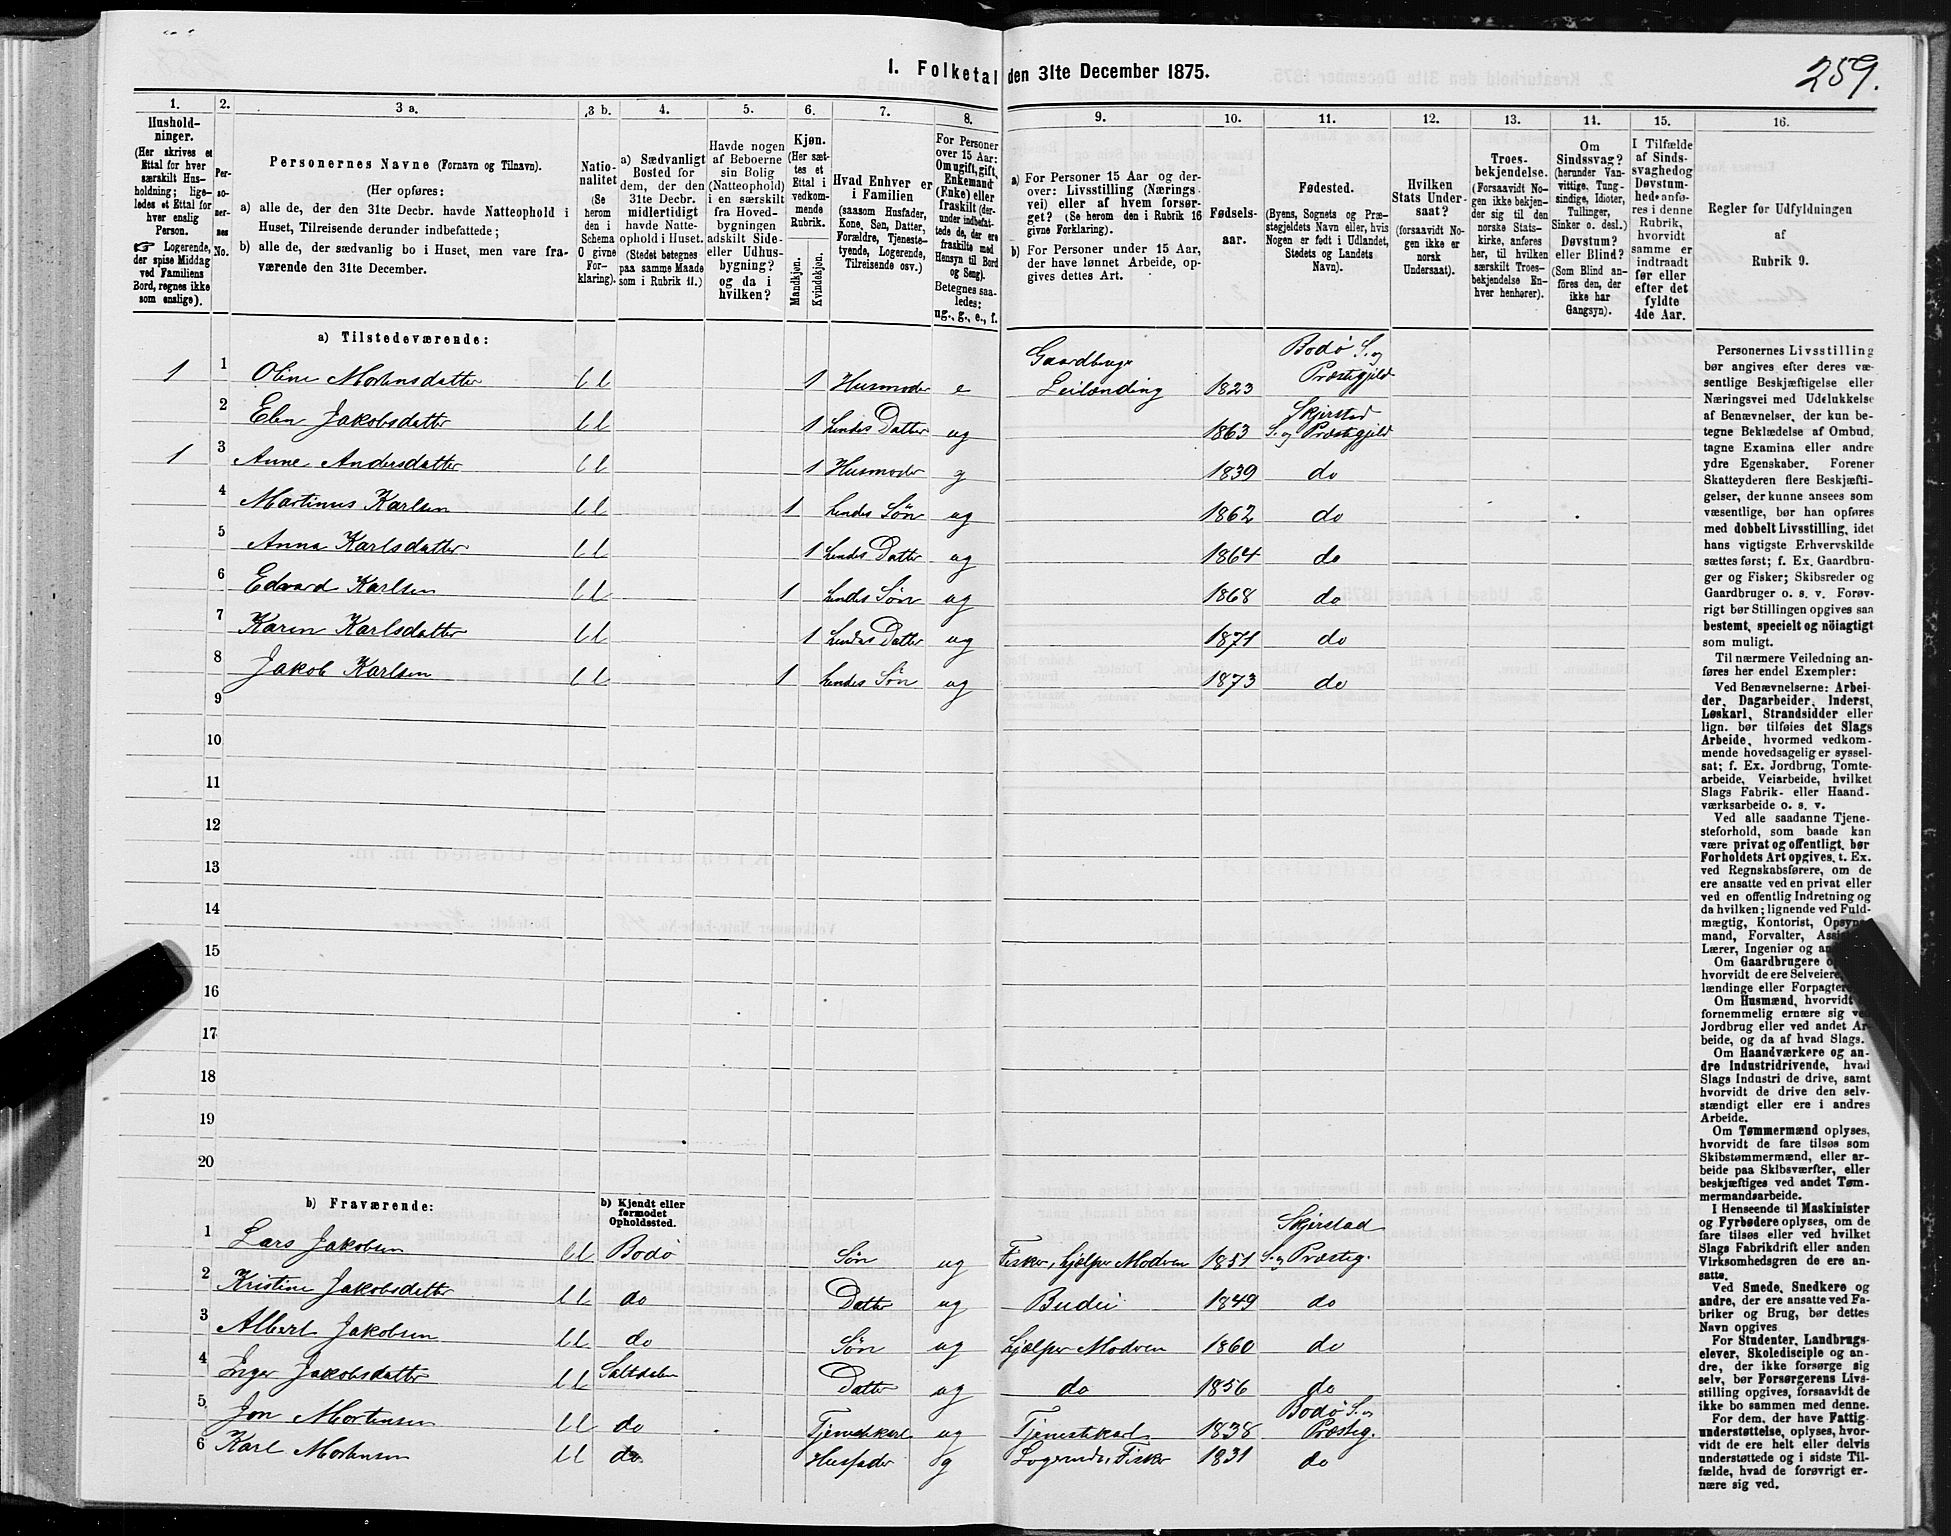 259.
I. Folketal den 31te December 1875.
1. 2. 3 a. 3 b. 4. 5. 6. 7. 8. 9. 10. 11. 12. 13. 14. 15. 16.
Hushold-
ninger.
(Her skrives et
Ettal for hver
særskilt Hus-
holdning; lige-
ledes et Ettal for
hver enslig
Person.
☞ Logerende,
der spise Middag
ved Familiens
Bord, regnes ikke
som enslige).
Per-
so-
ner-
nes
No.
Personernes Navne (Fornavn og Tilnavn).
(Her opføres:
a) alle de, der den 31te Decbr. havde Natteophold i
Huset, Tilreisende derunder indbefattede;
b) alle de, der sædvanlig bo i Huset, men vare fra-
værende den 31te December.
Natio-
nalitet
(Se
herom
den i
Schema
O givne
For-
klaring).
a) Sædvanligt
Bosted for
dem, der den
31te Decbr.
midlertidigt
havde Natte-
ophold i Huset.
(Stedet betegnes
paa samme Maade
som i Rubrik 11.)
Havde nogen
af Beboerne
sin Bolig
(Natteophold)
i en særskilt
fra Hoved-
bygningen
adskilt Side-
eller Udhus-
bygning?
og da i
hvilken?
Kjøn.
(Her sæt-
tes et
Ettal i
vedkom-
mende
Rubrik.
Mandkjøn.
Kvindekjøn.
Hvad Enhver er
i Familien
(saasom Husfader,
Kone, Søn, Datter,
Forældre, Tjeneste-
tyende, Logerende,
Tilreisende osv.)
For Personer
over 15 Aar:
Om ugift, gift,
Enkemand
(Enke) eller
fraskilt (der-
under indbefat-
tede de, der ere
fraskilte med
Hensyn til Bord
og Seng).
Betegnes saa-
ledes:
ug., g., e., f.
a) For Personer 15 Aar og der-
over: Livsstilling (Nærings-
vei) eller af hvem forsør-
get? (Se herom den i Rubrik 16
givne Forklaring).
b) For Personer under 15 Aar,
der have lønnet Arbeide, op-
gives dettes Art.
Fødsels-
aar.
Fødested.
(Byens, Sognets og Præ-
stegjeldets Navn eller, hvis
Nogen er født i Udlandet,
Stedets og Landets
Navn).
Hvilken
Stats Under-
saat?
(forsaavidt No-
gen ikke er
norsk
Undersaat).
Troes-
bekjendelse.
(Forsaavidt No-
gen ikke bekjen-
der sig til den
norske Stats-
kirke, anføres
her, til hvilken
særskilt Troes-
bekjendelse En-
hver henhører).
Om
Sindssvag?
(herunder Van-
vittige, Tung-
sindige, Idioter,
Tullinger,
Sinker o. desl.)
Døvstum?
eller Blind?
(Som Blind an-
føres den, der
ikke har
Gangsyn).
I Tilfælde
af Sinds-
svaghed og
Døvstum-
hed anfø-
res i denne
Rubrik,
hvorvidt
samme er
indtraadt
før eller
efter det
fyldte
4de Aar.
Regler for Udfyldningen
af
Rubrik 9.
a) Tilstedeværende:
1 1 Oline Mortensdatter ll 1 Husmoder e Gaardbruger Leilænding 1823 Bodø S. og Præstegjeld
2 Elen Jakobsdatter ll 1 hendes Datter ug 1863 Skjerstad S. og Præstegjeld
1 3 Anne Andersdatter ll 1 Husmoder g 1839 do
4 Martinus Karlsen ll 1 hendes Søn ug 1862 do
5 Anna Karlsdatter ll 1 hendes Datter ug 1864 do
6 Edvard Karlsen ll 1 hendes Søn ug 1868 do
7 Karen Karlsdatter ll 1 hendes Datter ug 1871 do
8 Jakob Karlsen ll 1 hendes Søn ug 1873 do
9
10
11
12
13
14
15
16
17
18
19
20
b) Fraværende:
b) Kjendt eller
formodet
Opholdssted.
1 Lars Jakobsen ll Bodø Søn ug Fisker, hjælper Modren 1851 Skjerstad S. og Præsteg.
2 Kristine Jakobsdatter ll do Datter ug Budei 1849 do
3 Albert Jakobsen ll do Søn ug hjælper Modren 1860 do
4 Inger Jakobsdatter ll Saltdalen Datter ug do 1856 do
5 Jon Mortensen ll do Tjenestekarl ug Tjenestekarl 1838 Bodø S. og Præsteg.
6 Karl Mortensen ll do Husfader g Logerende, Fisker 1831 do
Personernes Livsstilling
bør angives efter deres væ-
sentlige Beskjæftigelse eller
Næringsvei med Udelukkelse
af Benævnelser, der kun be-
tegne Beklædelse af Ombud,
tagne Examina eller andre
ydre Egenskaber. Forener
Skatteyderen flere Beskjæfti-
gelser, der kunne ansees som
væsentlige, bør han opføres
med dobbelt Livsstilling, idet
hans vigtigste Erhvervskilde
sættes først; f. Ex. Gaardbru-
ger og Fisker; Skibsreder og
Gaardbruger o. s. v. Forøv-
rigt bør Stillingen opgives saa
bestemt, specielt og nöiagtigt
som muligt.
Til nærmere Veiledning an-
føres her endel Exempler:
Ved Benævnelserne: Arbei-
der, Dagarbeider, Inderst,
Løskarl, Strandsidder eller
lign. bør tilføies det Slags
Arbeide, hvormed vedkom-
mende hovedsagelig er syssel-
sat; f. Ex. Jordbrug, Tomte-
arbeide, Veiarbeide, hvilket
Slags Fabrik- eller Haand-
værksarbeide o. s. v.
Ved alle saadanne Tjene-
steforhold, som baade kan
være privat og offentligt, bør
Forholdets Art opgives, t. Ex.
ved Regnskabsførere, om de
ere ansatte ved en privat eller
ved en offentlig Indretning og
da hvilken; lignende ved Fuld-
mægtig, Kontorist, Opsyns-
mand, Forvalter,
Lærer, Ingeniør og
Om Gaardbrugere
hvorvidt de ere Selveiere,
lændinge eller Forpagtere
Om Husmænd, hvorvidt
fornemmelig ernære sig ved
Jordbrug eller ved andet Ar-
beide, og da af hvad Slags.
Om Haandværkere og an-
dre Industridrivende, hvad
Slags Industri de drive, samt
hvorvidt de drive den selv-
stændigt eller ere i andres
Arbeide.
Om Tømmermænd oplyses,
hvorvidt de fare tilsøs som
Skibstømmermænd, eller ar-
beide paa Skibsværfter, eller
beskjæftiges ved andet Tøm-
mermandsarbeide.
I Henseende til Maskinister
og Fyrbødere oplyses, om de
fare tilsøs eller ved hvilket
Slags Fabrikdrift eller anden
Virksomhedsgren de ere an-
satte.
Ved Smede, Snedkere og
andre, der ere ansatte ved Fa-
briker og Brug, bør dettes
Navn opgives
For Studenter, Landbrugs-
elever, Skoledisciple og an-
dre, der ikke forsørge sig
selv, bør Forsørgerens Livs-
stilling opgives, forsaavidt de
ikke bo sammen med denne.
For dem, der have Fattig-
understøttelse, oplyses, hvor-
vidt de ere helt eller delvis
understøttede og i sidste Til-
fælde, hvad de forøvrigt er-
nære sig ved.